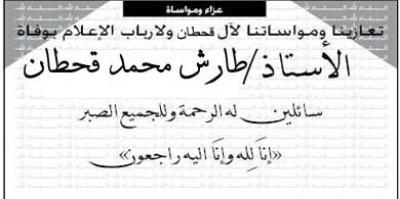 عزاء ومواساة
تعازينا ومواساتنا لآل قحطان ولارباب الإعلام بوفاة
الأستاذ/طارش محمد قحطان
سائلين له الرحمة وللجميع الصبر
«إنا لله وإنا اليه راجعون»